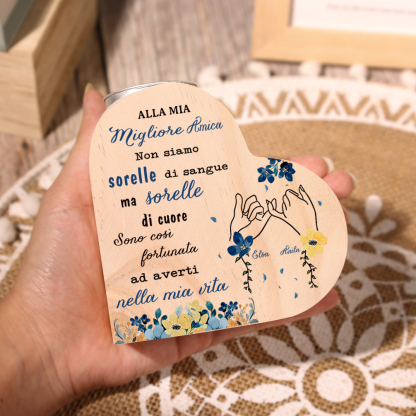 ALLA MIA
Migliore Amica
Non siamo
sorelle di sangue
ma sorelle
di cuore
Sono così
fortunata
ad averti
nella mia vita
Elsa Anita